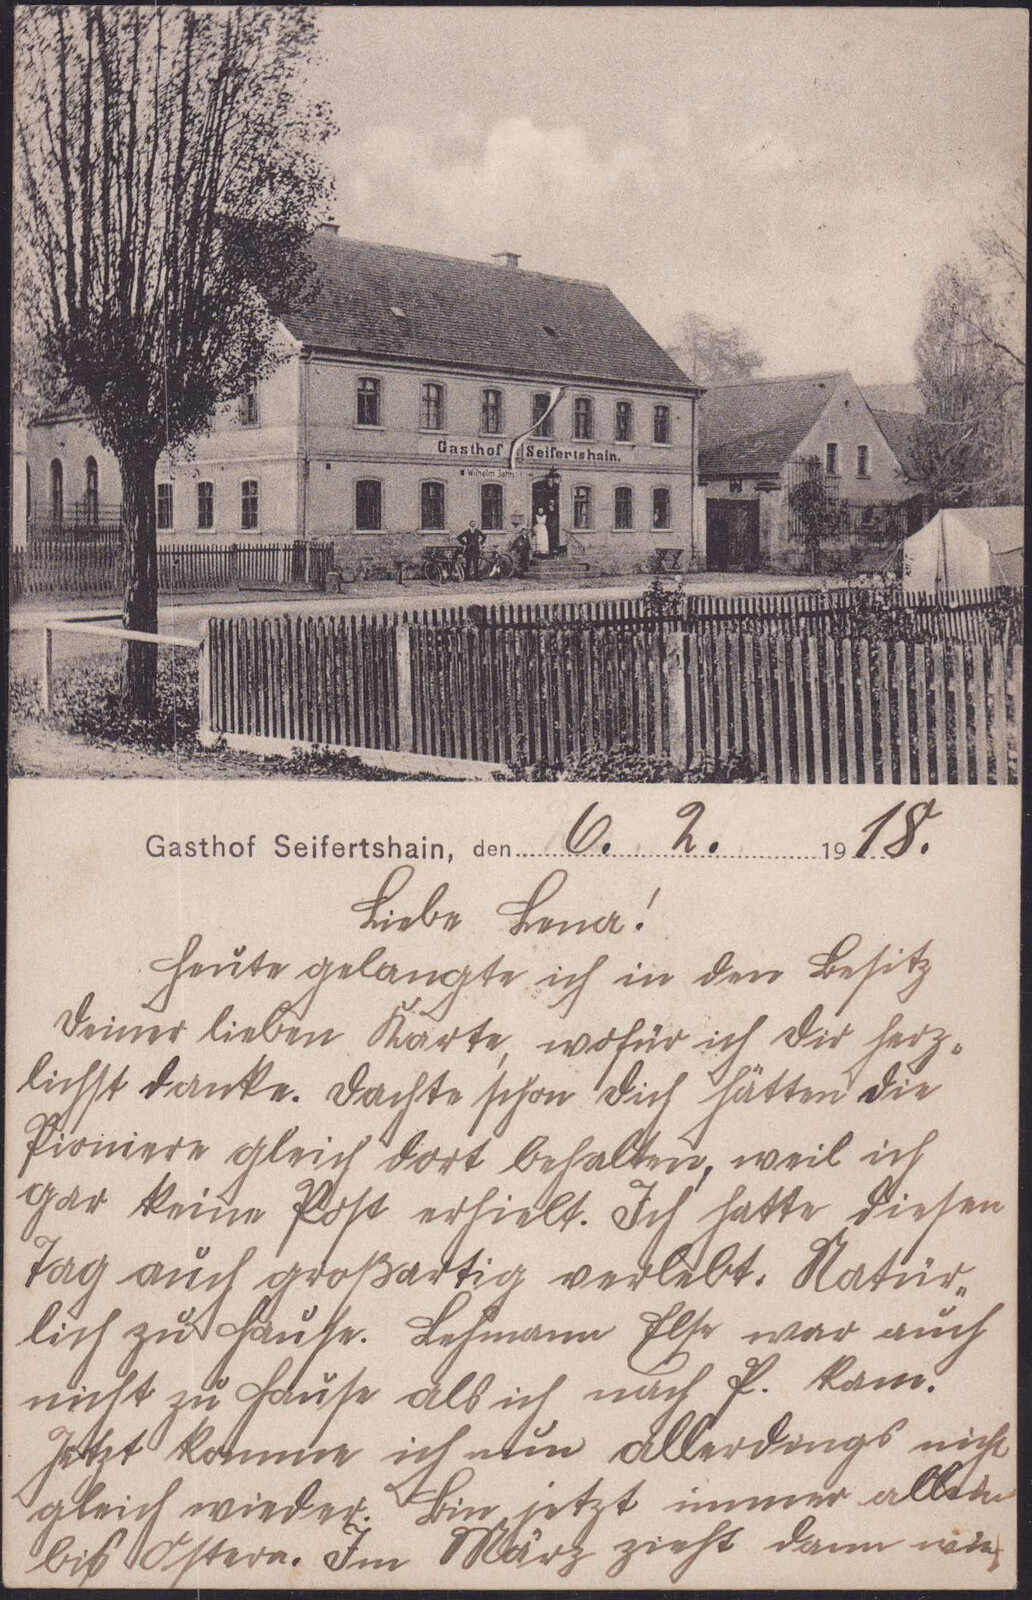 Gasthof Seifertshain.
Wilhelm
Gasthof Seifertshain, den 6. 2. 1918.
Liebe Lena!
Heute gelangte ich in den Besitz
Deiner lieben Karte, wofür ich Dir herz-
lichst danke. Dachte schon Dich hätten die
Pioniere gleich dort behalten, weil ich
gar keine Post erhielt. Ich hatte diesen
Tag auch großartig verlebt. Natür-
lich zu Hause. Lehmann Else war auch
nicht zu Hause als ich nach P. kam.
Jetzt komme ich nun allerdings nicht
gleich wieder. Bin jetzt immer allein
bis Ostern. Im März zieht dann